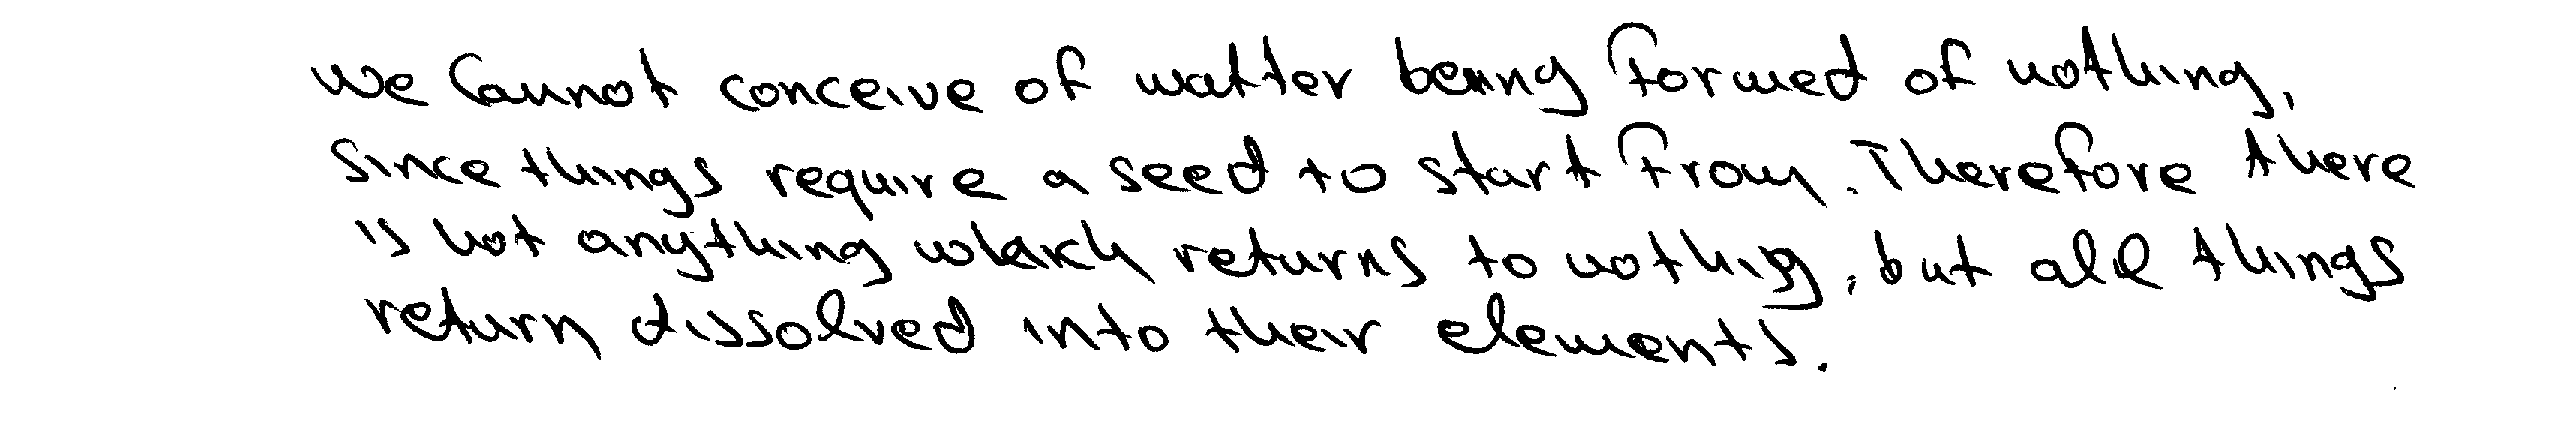 We Cannot conceive of matter being formed of nothing,
Since things require a seed to start from. Therefore there
is not anything which returns to nothing, but all things
return dissolved into their elements.